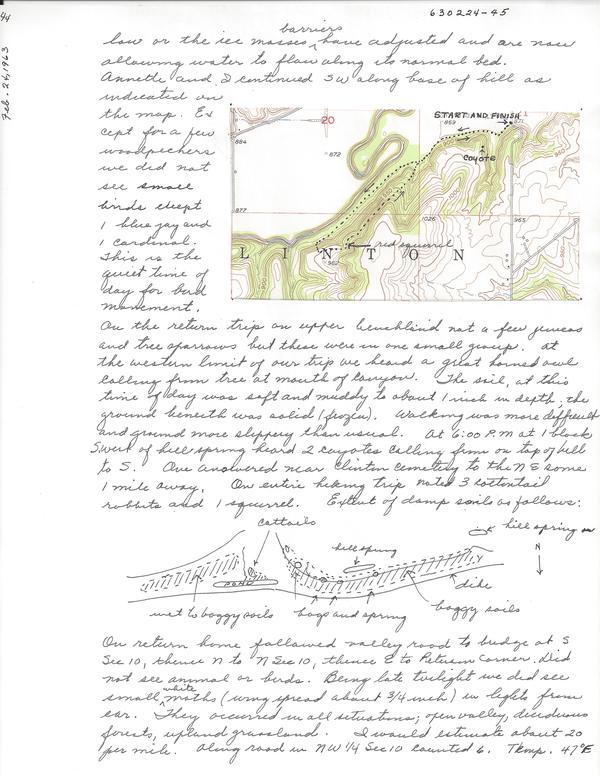 44
630224-45
Feb. 26, 1963
barriers
low or the ice masses ^ have adjusted and are now
allowing water to flow along its normal bed.
Annette and I continued SW along base of hill as
indicated on
the map. Ex
cept for a few
woodpeckers
we did not
see small
birds except
1 blue jay and
1 cardinal.
This is the
quiet time of
day for bird
movement.
START AND FINISH
20
869
871
884
872
COYOTE
960
877
1026
965
red squirrel
962
LINTON
900
On the return trip on upper benchland not a few juncos
and tree sparrows but these were in one small group. At
the western limit of our trip we heard a great horned owl
calling from tree at mouth of canyon. The soil, at this
time of day was soft and muddy to about 1 inch in depth. the
ground beneath was solid (frozen). Walking was more difficult
and ground more slippery than usual. At 6:00 P.M at 1 block
SWest of hill spring heard 2 coyotes calling from on top of hill
to S. One answered near Clinton cemetery to the NE some
1 mile away. On entire hiking trip noted 3 cottontail
rabbits and 1 squirrel. Extent of damp soils as follows:
cattails
hill spring
hill spring
N
POND
dike
wet to boggy soils
bogs and spring
boggy soils
On return home followed valley road to bridge at S
Sec 10, thence N to N Sec 10, thence E to Peterson Corner. Did
not see animal or birds. Being late twilight we did see
white
small ^ moths (wing spread about 3/4 inch) in lights from
car. They occurred in all situations; open valley, deciduous
forests, upland grassland. I would estimate about 20
per mile. Along road in NW 1/4 Sec 10 counted 6. Temp. 47°F